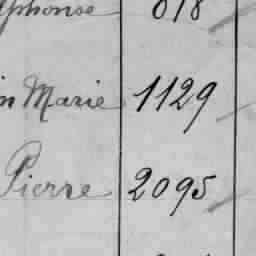 Alphonse 618
in Marie 1129
Pierre 2095